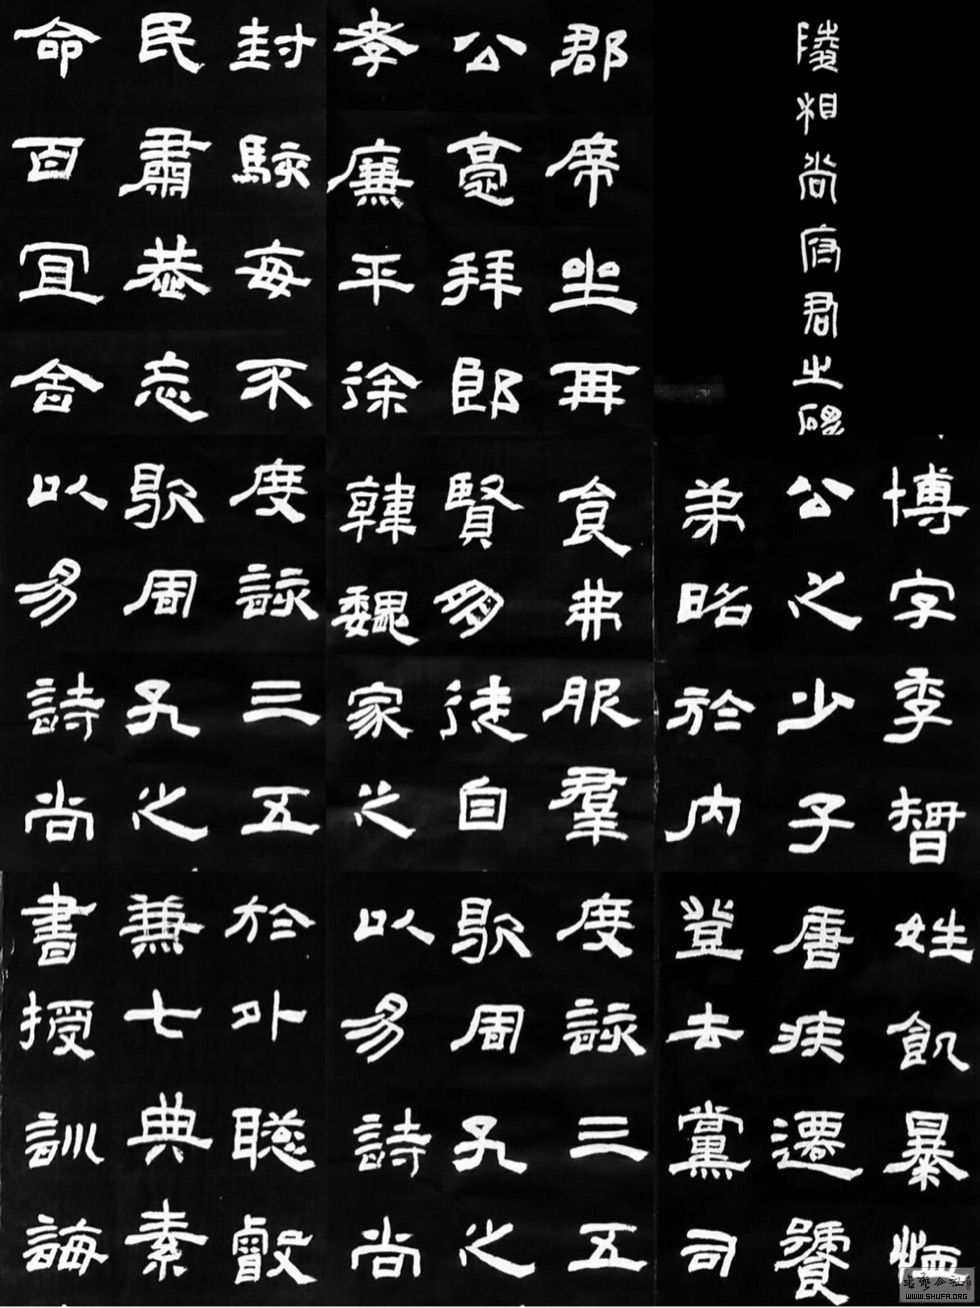 陵相尚府君之碑
郡席坐再
公拜郎
孝廉平徐
封駮每不
民肅恭忘
命百宜舍
博字季智
公之少子
弟略於内
食弗服羣
賢多徒自
韓魏家之
度詠三五
歌周孔之
以易詩尚
姓飢暴恤
唐疾遷饔
登去黨司
度詠三五
歌周孔之
以易詩尚
於外聰叡
兼七典素
書授訓誨
WWW.SHUFA.ORG